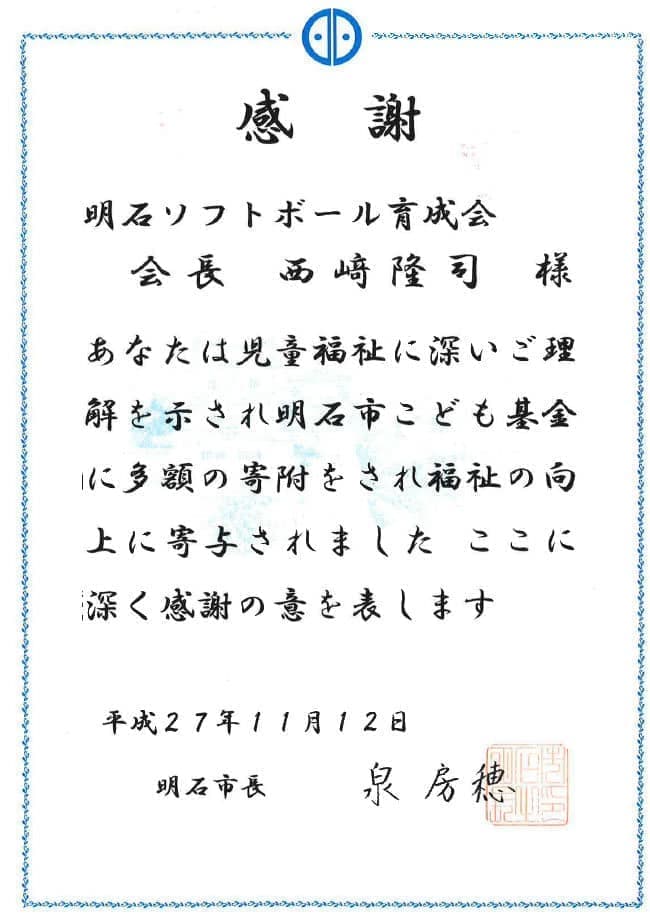 感謝
明石ソフトボール育成会
会長 西﨑隆司 様
あなたは児童福祉に深いご理
解を示され明石市こども基金
に多額の寄附をされ福祉の向
上に寄与されました ここに
深く感謝の意を表します
平成27年11月12日
明石市長 泉 房穂